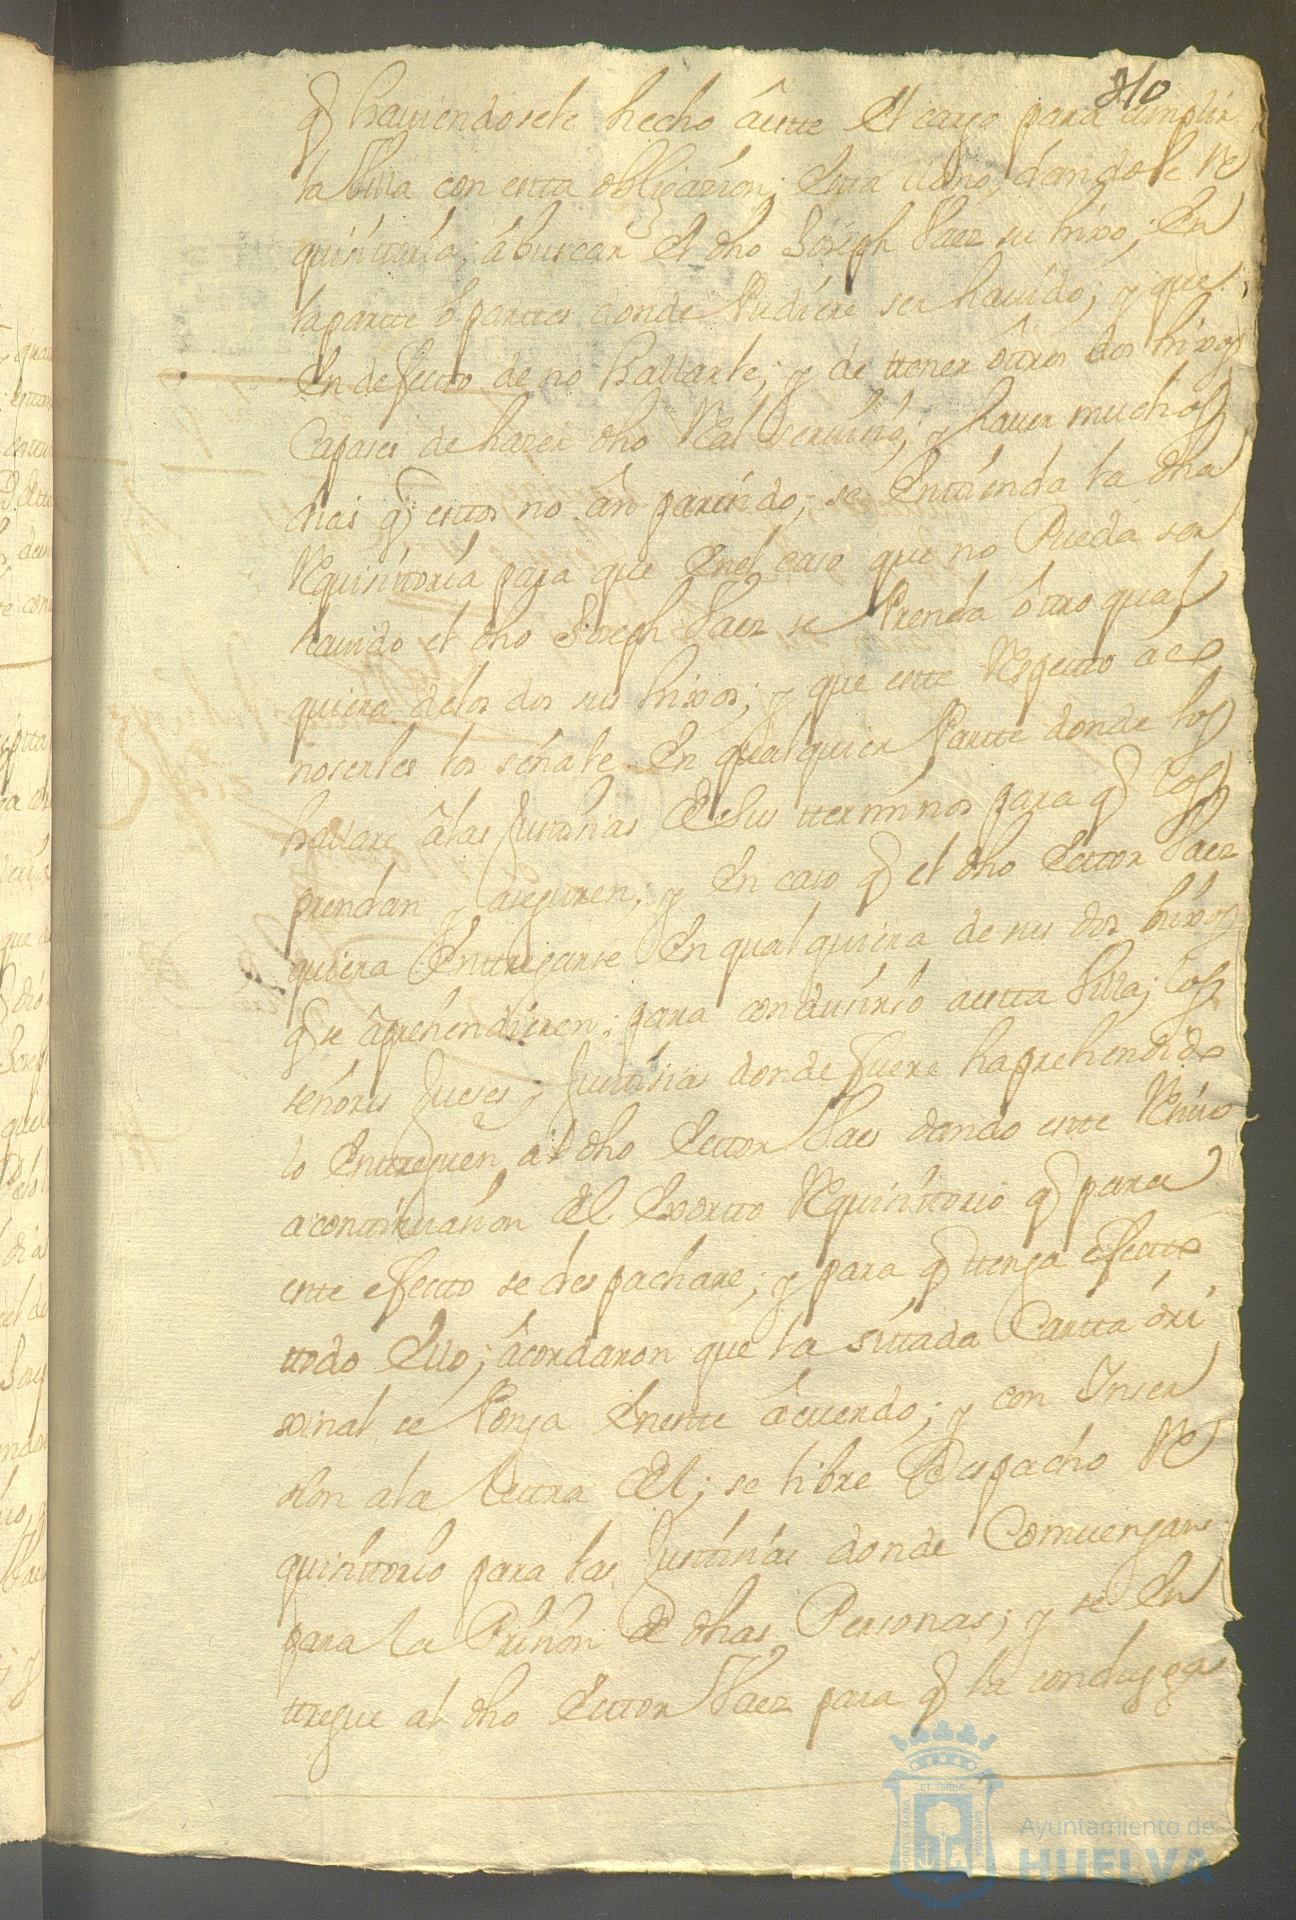 210
q̃ haviendosele hecho âeste el cargo para cumplir
la Villa con esta obligazion; dandole Re
quisitoria; âbuscar el dho Joseph Saez su hixo; En
laparte o partes donde Pudiere ser havido; y que
En defecto de no hallarle; y de ttener ôttros dos hixos
Capases de hazer dho Real servisio; y haver muchos
dias q̃ esttos no ân paresido; se Enttienda la dha
Requisittoria para que Enel caso que no Pueda ser
havido el dho Joseph Saez se Prenda ôttro qual
quiera delos dos sus hixos; y que este Respecto de
noserles los señale En qualquier Partte donde los
hallare âlas Justisias de sus tterminos para q̃ los
prendan y aseguren; y En caso q̃ el dho Saez
quiera Enttregarse En qualquiera de sus dos hixos
q̃ se âprehendieren; para condusirlo aestta Villa; los
señores Jueses y Justisias donde fuere haprehendido
lo Enttreguen al dho Saes dando este Resivo
acontinuasion del Exortto Requisittorio q̃ para
este efectto se despachare; y para q̃ ttenga efectto
ttodo Ello; âcordaron que la sittada Cartta ôri
xinal se Ponga Eneste âcuerdo; y con Inser
sion ala lettra del; se libre Despacho Re
quisittorio para las Justisias donde Comvengan
para la Prision de dhas Personas; y se En
ttregue al dho Saez para q̃ la conduzga
Ayuntamiento de
HUELVA